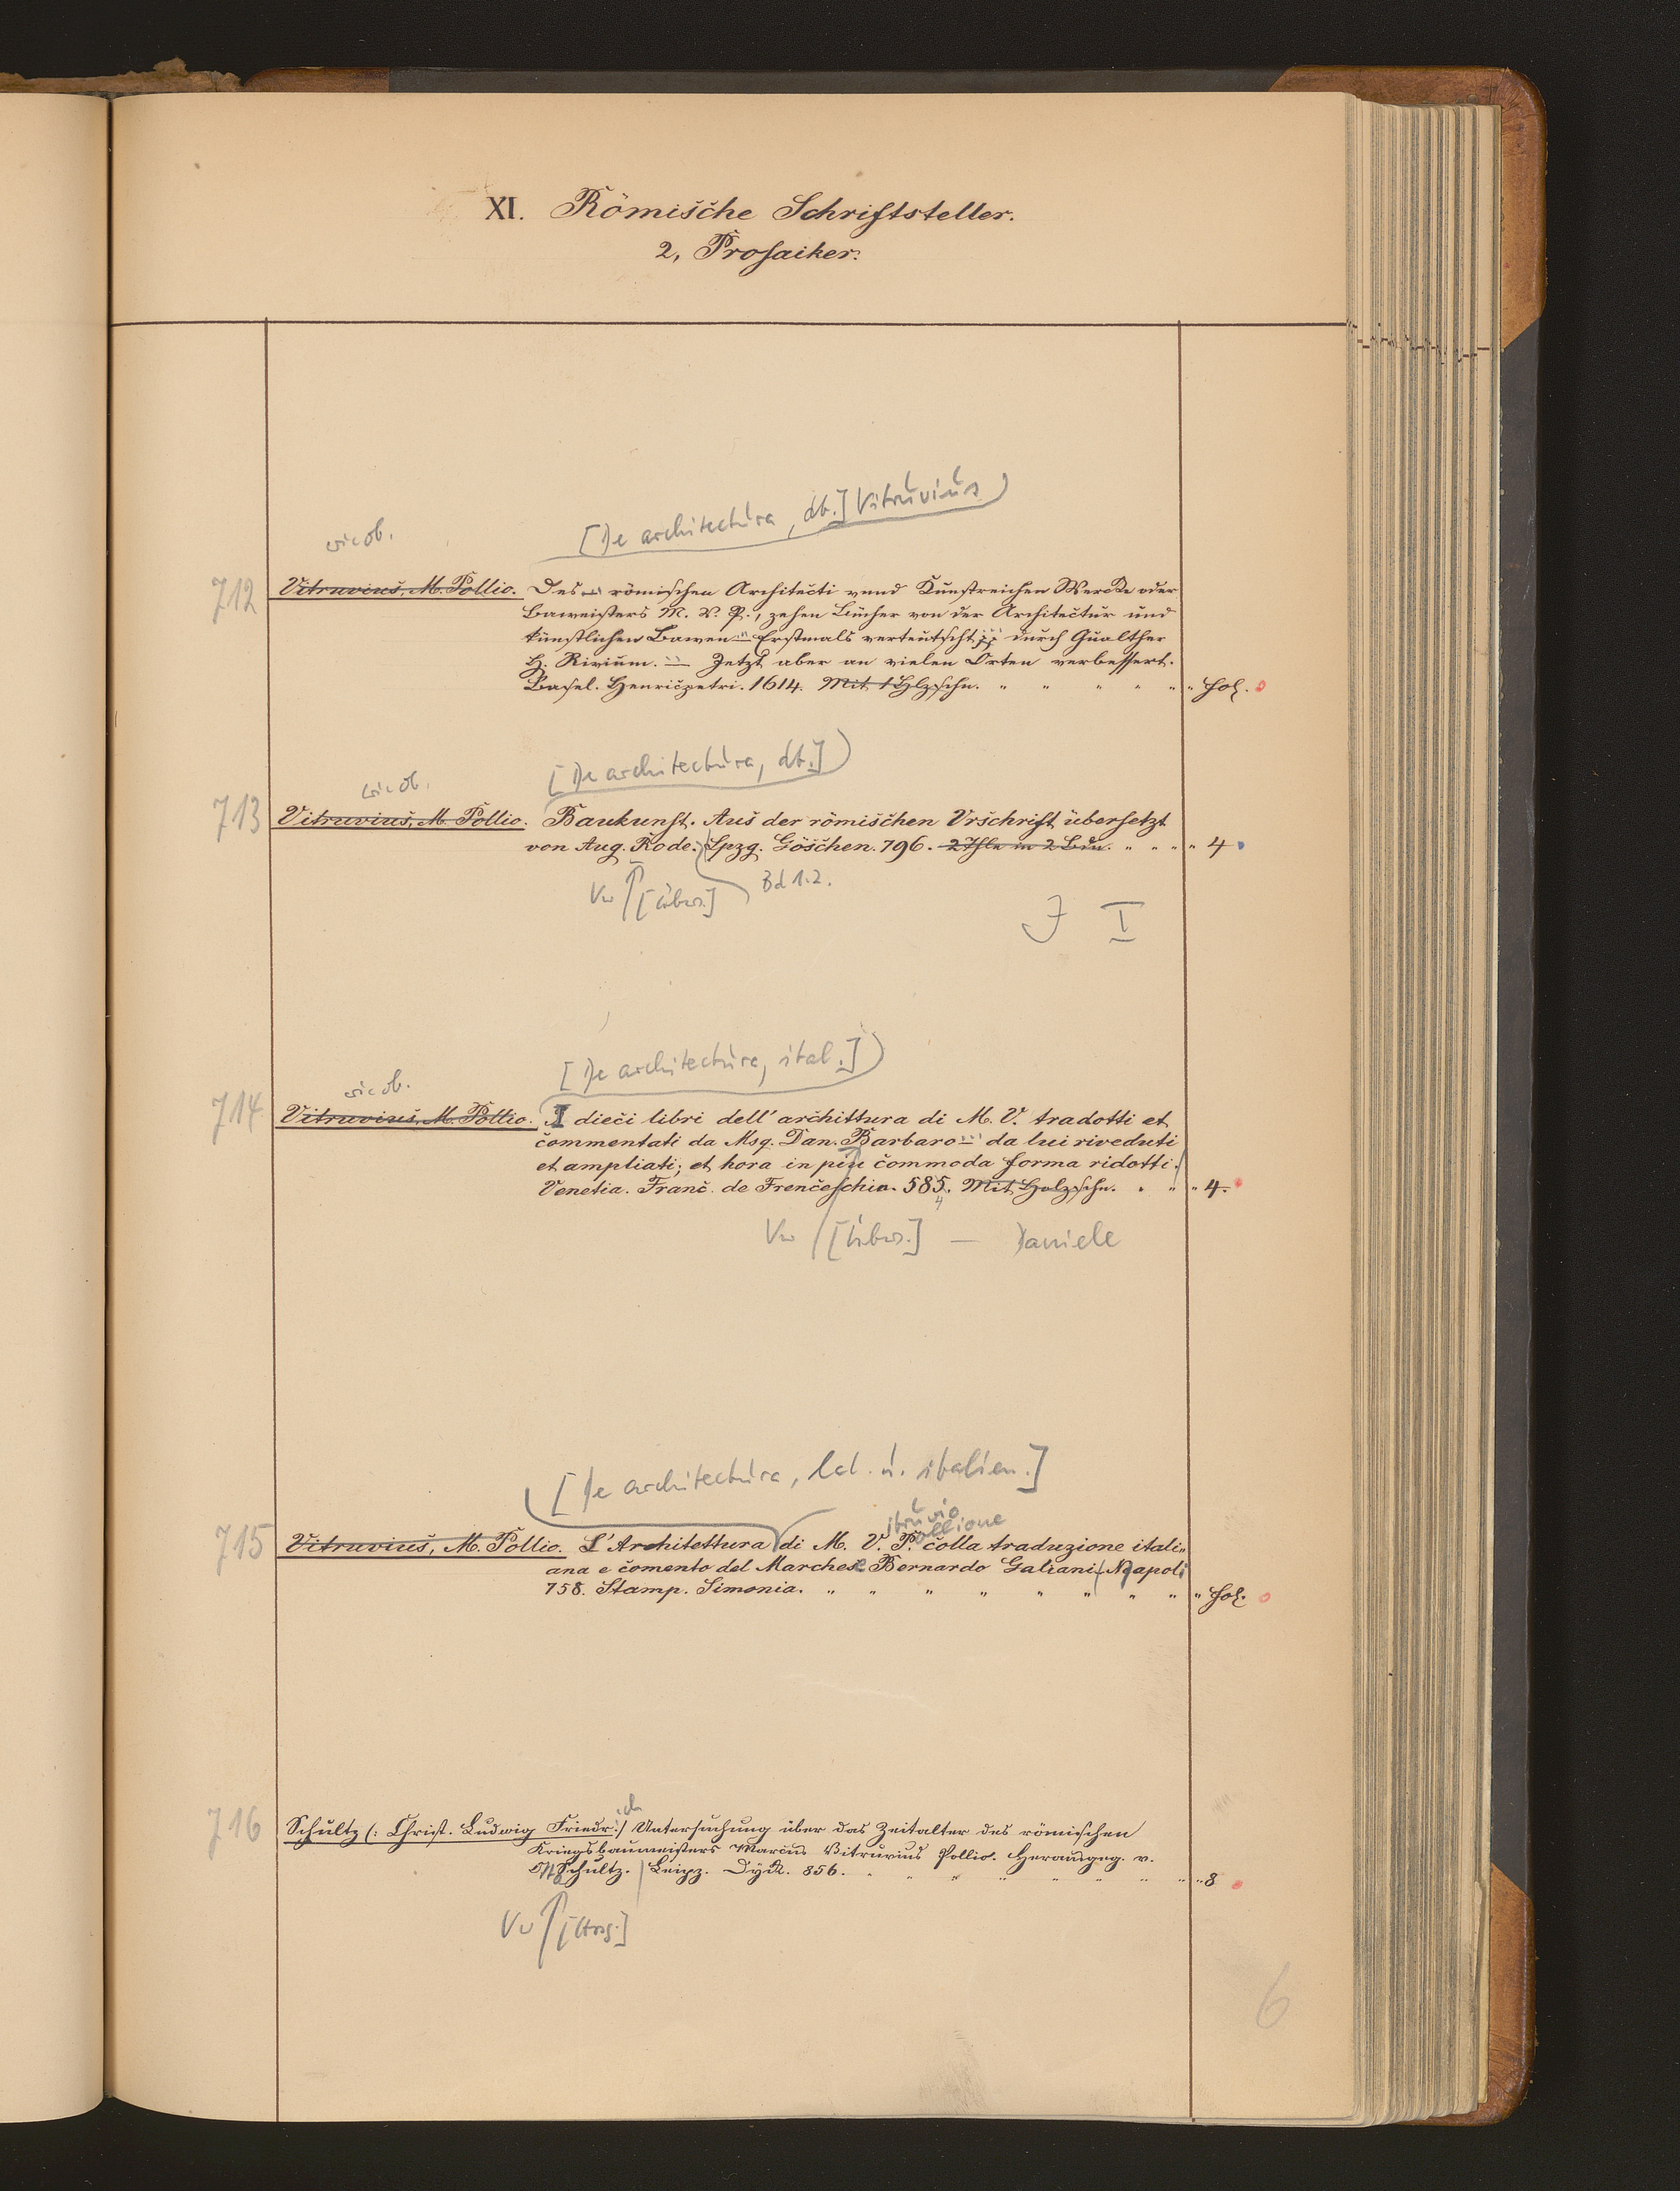 XI. Römische Schriftsteller.
2, Prosaiker.
[De architectura, dt.] Vitruvius
wie ob.
712 Vitruvius, M. Pollio. Des römischen Architecti vnnd Kunstreichen Wercks oder
Baweisters M. V. P., zehen Bücher von der Architectur und
künstlichen Bawen Erstmals verteutscht durch Gualther
H. Rivium. Jetzt aber an vielen Orten verbessert.
Basel. Henricpetri. 1614. Mit 1 Hlzschn. " " " " " " fol.
[De architectura, dt.]
wie ob.
713 Vitruvius, M. Pollio. Baukunst. Aus der römischen Urschrift übersetzt
von Aug. Rode. Lpzg. Göschen. 796. 2 Thle in 2 Bdn. " " " " 4
Vw [Übers.] Bd 1.2.
J I
[De architectura, ital.]
wie ob.
714 Vitruvius, M. Pollio. I dieci libri dell' archittura di M. V. tradotti et
commentati da Msg. Dan. Barbaro da lui riveduti
et ampliati; et hora in piu commoda forma ridotti.
Venetia. Franc. de Frenceschia. 585. Mit Holzschn. " " " 4.
4
Vw [Übers.] — Daniele
[De architectura, lat. u. italien.]
itruvio
ollione
715 Vitruvius, M. Pollio. L'Architettura di M. V. P. colla traduzione itali=
ana e comento del Marchese Bernardo Galiani. Napoli
758. Stamp. Simonia. " " " " " " " " " fol.
ich
716 Schultz (: Christ. Ludwig Friedr:) Untersuchung über das Zeitalter des römischen
Kriegsbaumeisters Marcus Vitruvius Pollio. Herausgeg. v.
Schultz. Leipz. Dyk. 856. " " " " " " " " 8
Vw [Hrsg.]
6